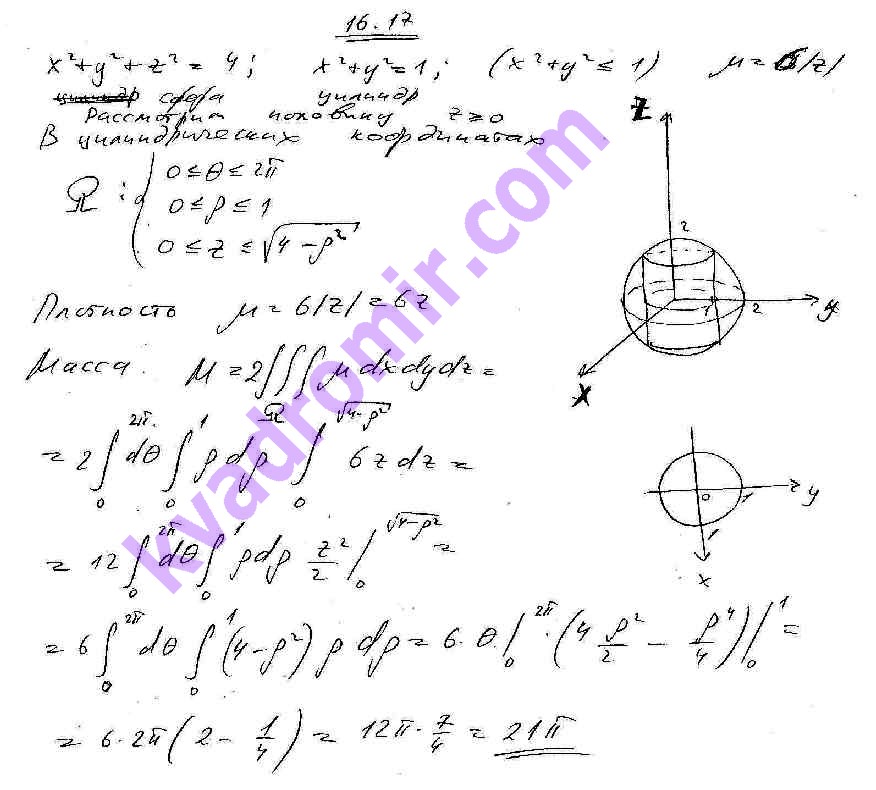 16.17
x²+y²+z² = 4; x²+y²=1; (x²+y² ≤ 1) μ = 6|z|
сфера цилиндр
Рассмотрим половину z≥0
В цилиндрических координатах
Ω: { 0 ≤ θ ≤ 2π
0 ≤ ρ ≤ 1
0 ≤ z ≤ √(4-ρ²)
Плотность μ = 6|z| = 6z
Масса. M = 2∭_Ω μ dxdydz =
= 2 ∫₀^2π. dθ ∫₀^1 ρ dρ ∫₀^√(4-ρ²) 6z dz =
= 12 ∫₀^2π dθ ∫₀^1 ρdρ z²/2 |₀^√(4-ρ²) =
= 6 ∫₀^2π dθ ∫₀^1 (4-ρ²) ρ dρ = 6·θ·|₀^2π · (4 ρ²/2 - ρ⁴/4)|₀^1 =
= 6·2π(2 - 1/4) = 12π · 7/4 = 21π
Z
2
1
2
y
X
0
1
y
1
x
kvadromir.com